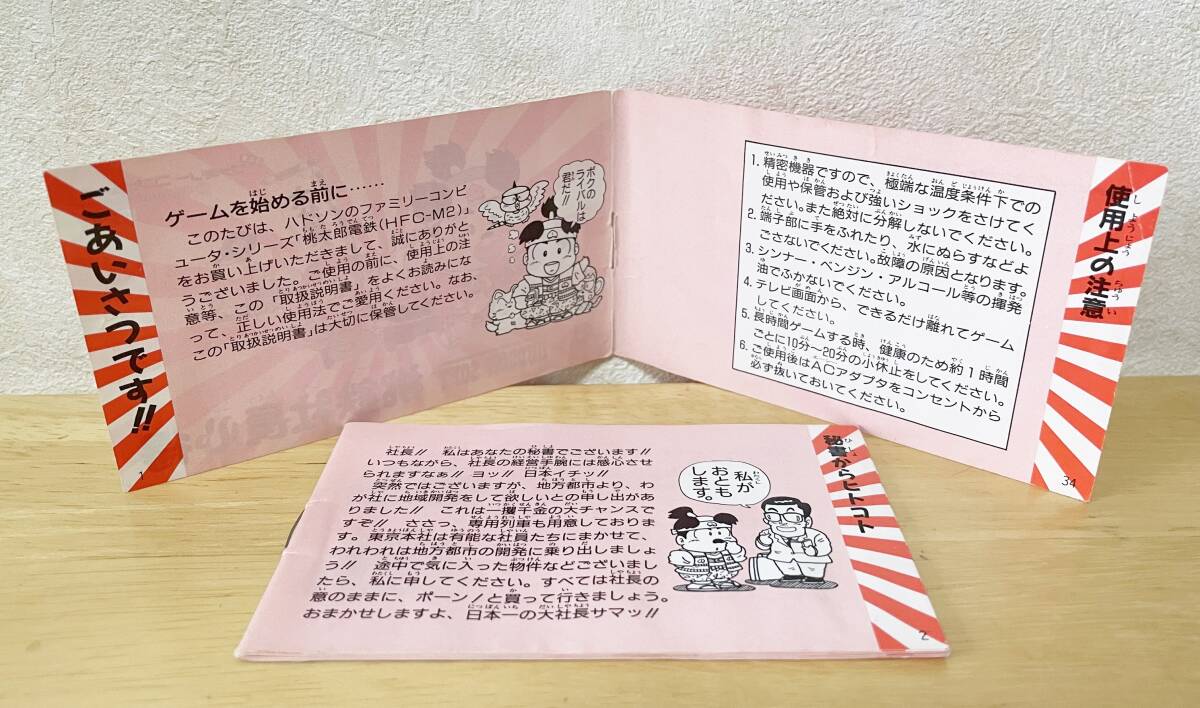 ごあいさつです!!
ゲームを始める前に……
このたびは、ハドソンのファミリーコンピ
ュータ・シリーズ「桃太郎電鉄(HFC-M2)」
をお買い上げいただきまして、誠にありがと
うございました。ご使用の前に、使用上の注
意等、この「取扱説明書」をよくお読みにな
って、正しい使用法でご愛用ください。なお、
この「取扱説明書」は大切に保管してください。
ボクの
ライバルは
君だ!!
1
使用上の注意
1. 精密機器ですので、極端な温度条件下での
使用や保管および強いショックをさけてく
ださい。また絶対に分解しないでください。
2. 端子部に手をふれたり、水にぬらすなどよ
ごさないでください。故障の原因となります。
3. シンナー・ベンジン・アルコール等の揮発
油でふかないでください。
4. テレビ画面から、できるだけ離れてゲーム
してください。
5. 長時間ゲームする時、健康のため約1時間
ごとに10分〜20分の小休止をしてください。
6. ご使用後はACアダプタをコンセントから
必ず抜いておいてください。
34
秘書からヒトコト
社長!! 私はあなたの秘書でございます!!
いつもながら、社長の経営手腕には感心させ
られますなぁ!! ヨッ!! 日本イチッ!!
突然ではございますが、地方都市より、わ
が社に地域開発をして欲しいとの申し出があ
りました!! これは一攫千金の大チャンスで
すぞ!! ささっ、専用列車も用意しておりま
す。東京本社は有能な社員たちにまかせて、
われわれは地方都市の開発に乗り出しましょ
う!! 途中で気に入った物件などございまし
たら、私に申してください。すべては社長の
意のままに、ポーン!と買って行きましょう。
おまかせしますよ、日本一の大社長サマッ!!
私が
おとも
します。
2